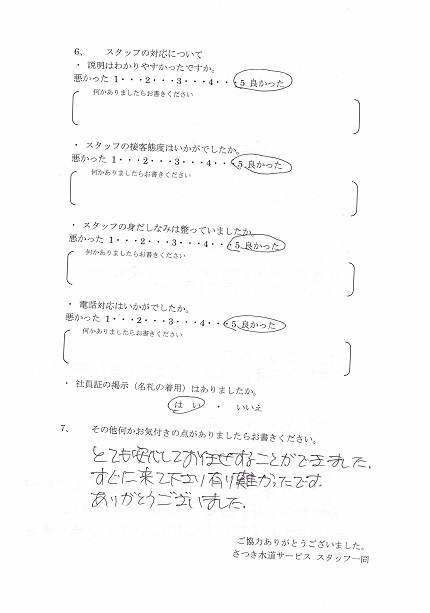 6、 スタッフの対応について
・ 説明はわかりやすかったですか。
悪かった 1・・・2・・・3・・・4・・・5 良かった
何かありましたらお書きください
・ スタッフの接客態度はいかがでしたか。
悪かった 1・・・2・・・3・・・4・・・5 良かった
何かありましたらお書きください
・ スタッフの身だしなみは整っていましたか。
悪かった 1・・・2・・・3・・・4・・・5 良かった
何かありましたらお書きください
・ 電話対応はいかがでしたか。
悪かった 1・・・2・・・3・・・4・・・5 良かった
何かありましたらお書きください
・ 社員証の掲示（名札の着用）はありましたか。
はい ・ いいえ
7、 その他何かお気付きの点がありましたらお書きください。
とても安心してお任せすることができました。
すぐに来て下さり有り難かったです。
ありがとうございました。
ご協力ありがとうございました。
さつき水道サービス スタッフ一同